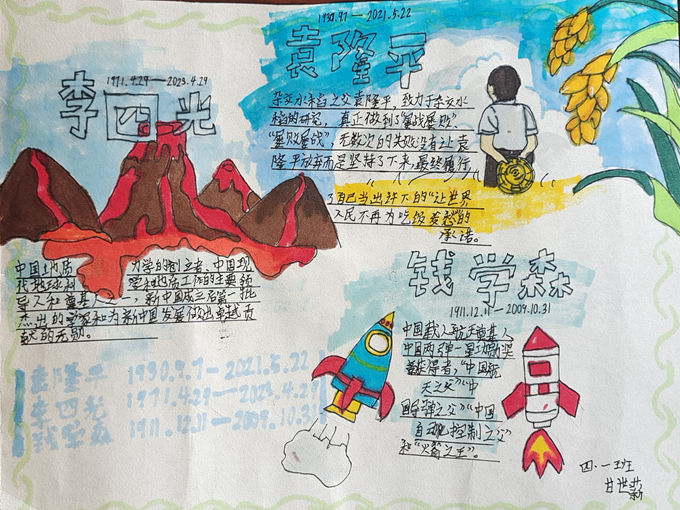 1930.9.7—2021.5.22
袁隆平
杂交水稻之父袁隆平，致力于杂交水
稻的研究，真正做到了“屡战屡败”，
“屡败屡战”，无数次的失败没有让袁
隆平放弃而是坚持了下来，最终履行
了自己当出许下的“让世界
人民不再为吃饭发愁”的
承诺。
1971.4.29—2023.4.29
李四光
中国地质力学的创立者、中国现
代地球和地质工作的主要领
导人和奠基人之一，新中国成立后第一批
杰出的科学家和为新中国发展做出卓越贡
献的元勋。
钱学森
1911.12.11—2009.10.31
中国载人航天奠基人
中国两弹一星功勋奖
章获得者，“中国航
天之父”“中
国导弹之父”“中国
自动化控制之父”
和“火箭之王”。
袁隆平 1930.9.7-2021.5.22
李四光 1971.4.29-2023.4.29
钱学森 1911.12.11-2009.10.31
四.一班
甘世